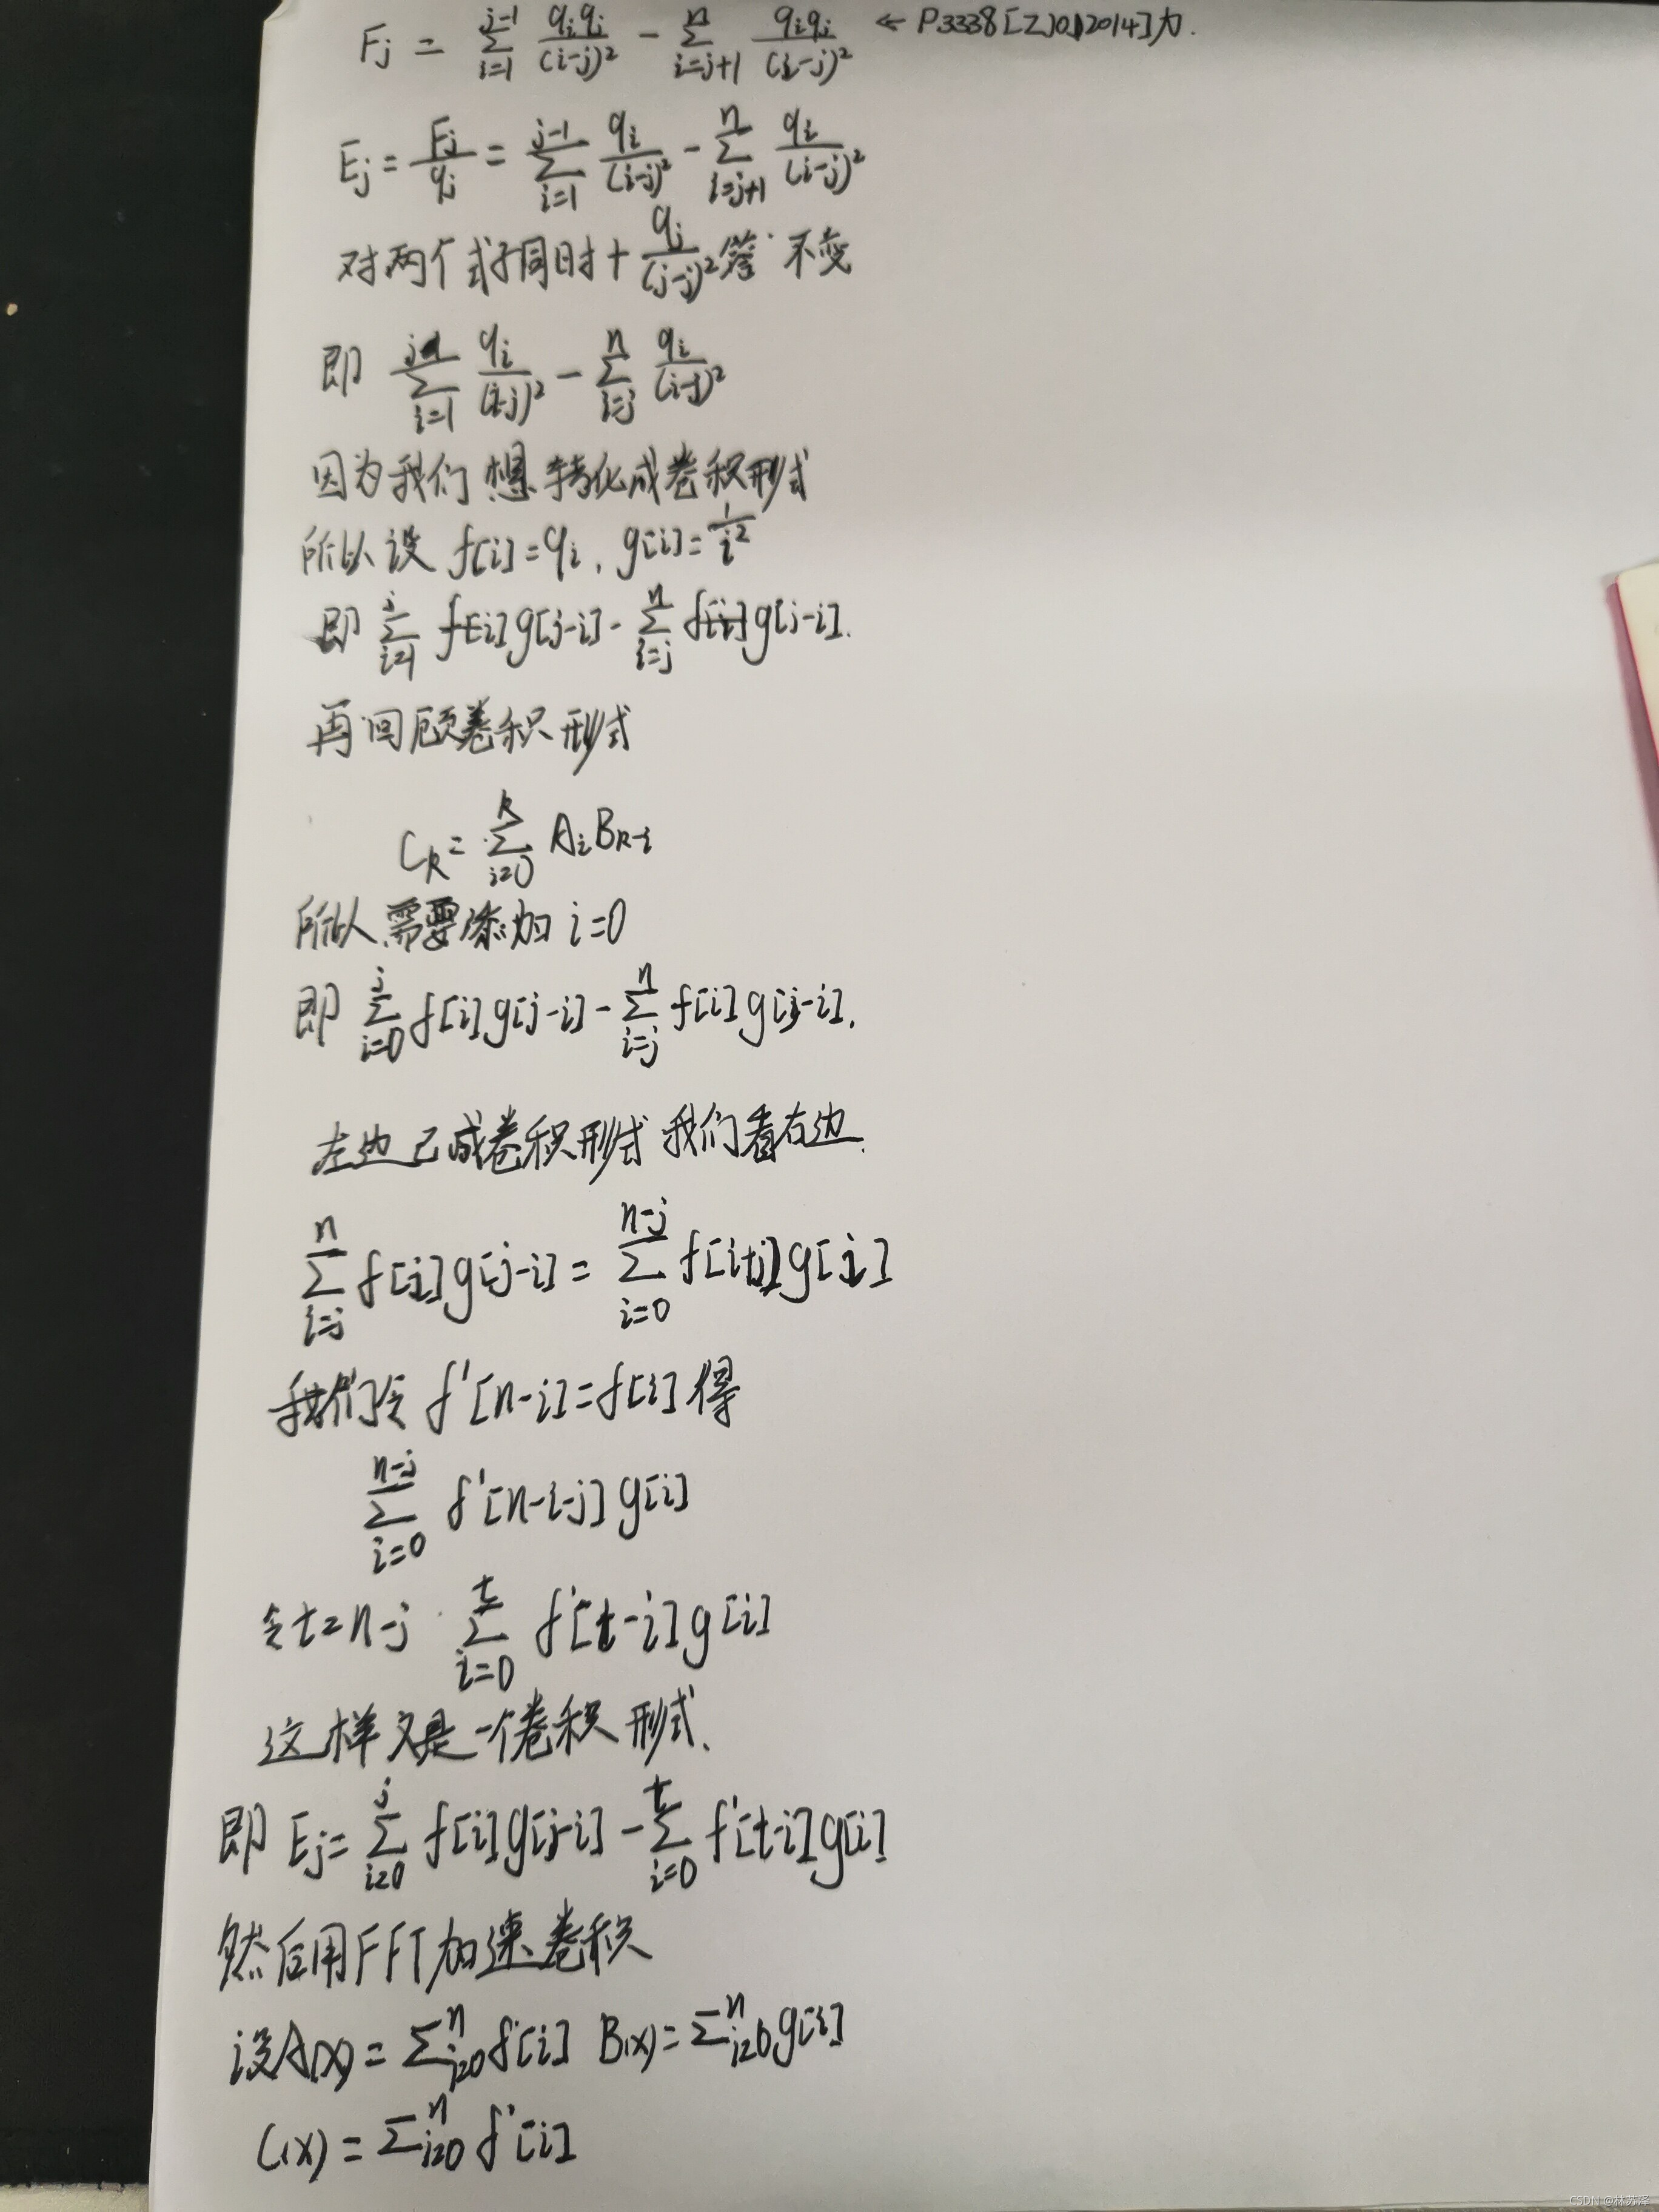 Fj = Σ_{i=1}^{j-1} qiqj/(i-j)² - Σ_{i=j+1}^{n} qiqj/(i-j)² ← P3338[ZJOI2014]力.
Ej = Fj/qj = Σ_{i=1}^{j-1} qi/(i-j)² - Σ_{i=j+1}^{n} qi/(i-j)²
对两个式子同时+ qj/(j-j)² 答 不变
即 Σ_{i=1}^{j} qi/(i-j)² - Σ_{i=j}^{n} qi/(i-j)²
因为我们想转化成卷积形式
所以设 f[i]=qi, g[i]=1/i²
即 Σ_{i=1}^{j} f[i]g[j-i] - Σ_{i=j}^{n} f[i]g[j-i].
再回顾卷积形式
Ck = Σ_{i=0}^{k} AiBk-i
所以需要添加 i=0
即 Σ_{i=0}^{j} f[i]g[j-i] - Σ_{i=j}^{n} f[i]g[j-i].
左边已成卷积形式 我们看右边.
Σ_{i=j}^{n} f[i]g[j-i] = Σ_{i=0}^{n-j} f[i+j]g[i]
我们令 f'[n-i]=f[i] 得
Σ_{i=0}^{n-j} f'[n-i-j]g[i]
令t=n-j Σ_{i=0}^{t} f'[t-i]g[i]
这样又是一个卷积形式.
即 Ej= Σ_{i=0}^{j} f[i]g[j-i] - Σ_{i=0}^{t} f'[t-i]g[i]
然后用FFT加速卷积
设A(x) = Σ_{i=0}^{n} f[i] B(x) = Σ_{i=0}^{n} g[i]
C(x) = Σ_{i=0}^{n} f'[i]
CSDN @林苏泽